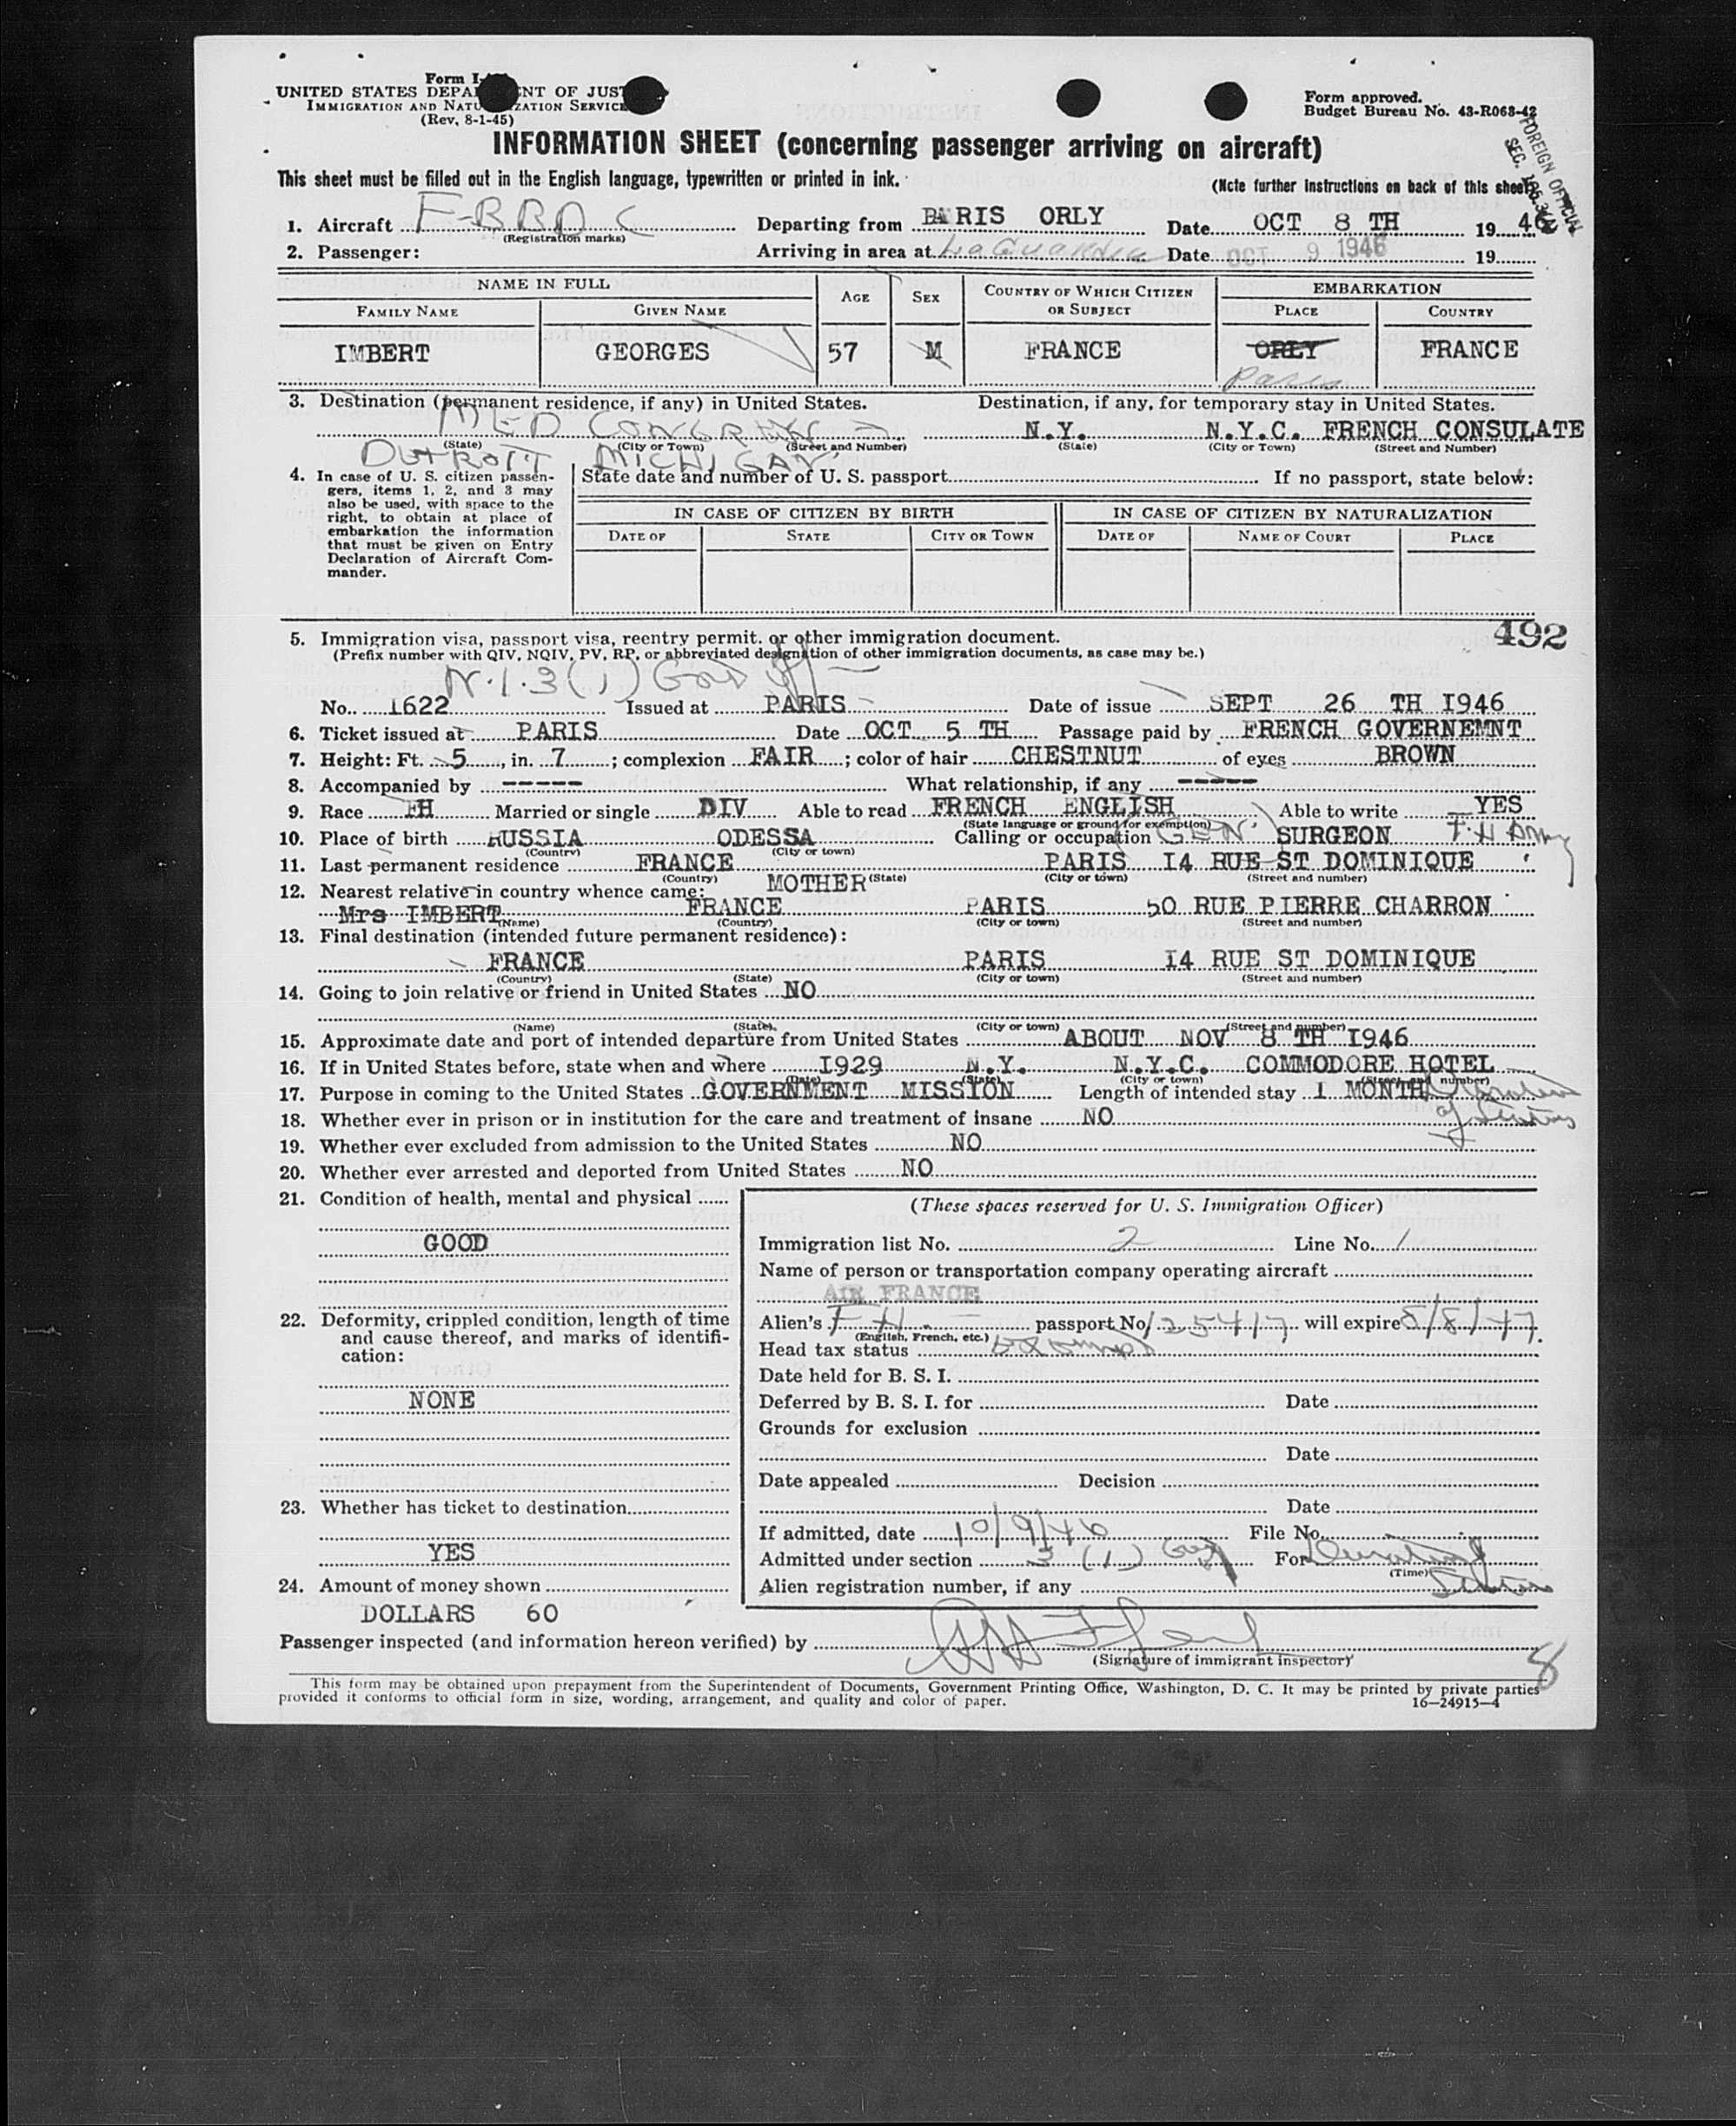 Form I-
UNITED STATES DEPA NT OF JUST
IMMIGRATION AND NATU ZATION SERVICE
(Rev. 8-1-45)
Form approved.
Budget Bureau No. 43-R063-42
FOREIGN OFFICIAL
SEC.
INFORMATION SHEET (concerning passenger arriving on aircraft)
This sheet must be filled out in the English language, typewritten or printed in ink.
(Note further instructions on back of this sheet)
1. Aircraft F-BBDC Departing from PARIS ORLY Date OCT 8 TH 19 46
(Registration marks)
2. Passenger: Arriving in area at LaGuardia Date OCT 9 1946 19
NAME IN FULL AGE SEX COUNTRY OF WHICH CITIZEN OR SUBJECT EMBARKATION
FAMILY NAME GIVEN NAME PLACE COUNTRY
IMBERT GEORGES 57 M FRANCE ORLY FRANCE
Paris
3. Destination (permanent residence, if any) in United States. Destination, if any, for temporary stay in United States.
MED CONGRESS N.Y. N.Y.C. FRENCH CONSULATE
(State) (City or Town) (Street and Number) (State) (City or Town) (Street and Number)
DETROIT MICHIGAN
4. In case of U. S. citizen passengers, items 1, 2, and 3 may also be used, with space to the right, to obtain at place of embarkation the information that must be given on Entry Declaration of Aircraft Commander.
State date and number of U. S. passport If no passport, state below:
IN CASE OF CITIZEN BY BIRTH IN CASE OF CITIZEN BY NATURALIZATION
DATE OF STATE CITY OR TOWN DATE OF NAME OF COURT PLACE
492
5. Immigration visa, passport visa, reentry permit, or other immigration document.
(Prefix number with QIV, NQIV, PV, RP, or abbreviated designation of other immigration documents, as case may be.)
N.I. 3(1) Gov Off
No. 1622 Issued at PARIS Date of issue SEPT 26 TH I946
6. Ticket issued at PARIS Date OCT 5 TH Passage paid by FRENCH GOVERNEMNT
7. Height: Ft. 5, in. 7; complexion FAIR; color of hair CHESTNUT of eyes BROWN
8. Accompanied by ----- What relationship, if any -----
9. Race FH Married or single DIV Able to read FRENCH ENGLISH Able to write YES
(State language or ground for exemption)
10. Place of birth RUSSIA ODESSA Calling or occupation (GEN.) SURGEON FH Army
(Country) (City or town)
11. Last permanent residence FRANCE PARIS I4 RUE ST DOMINIQUE
(Country) (State) (City or town) (Street and number)
12. Nearest relative in country whence came: MOTHER
Mrs IMBERT FRANCE PARIS 50 RUE PIERRE CHARRON
(Name) (Country) (City or town) (Street and number)
13. Final destination (intended future permanent residence):
FRANCE PARIS I4 RUE ST DOMINIQUE
(Country) (State) (City or town) (Street and number)
14. Going to join relative or friend in United States NO
(Name) (State) (City or town) (Street and number)
15. Approximate date and port of intended departure from United States ABOUT NOV 8 TH I946
16. If in United States before, state when and where I929 N.Y. N.Y.C. COMMODORE HOTEL
(Date) (State) (City or town) (Street and number)
17. Purpose in coming to the United States GOVERNMENT MISSION Length of intended stay 1 MONTH Duration
of Status
18. Whether ever in prison or in institution for the care and treatment of insane NO
19. Whether ever excluded from admission to the United States NO
20. Whether ever arrested and deported from United States NO
21. Condition of health, mental and physical
GOOD
22. Deformity, crippled condition, length of time and cause thereof, and marks of identification:
NONE
23. Whether has ticket to destination
YES
24. Amount of money shown
DOLLARS 60
(These spaces reserved for U. S. Immigration Officer)
Immigration list No. 2 Line No. 1
Name of person or transportation company operating aircraft
AIR FRANCE
Alien's FH. passport No. 125417 will expire 8/8/47.
(English, French, etc.)
Head tax status exempt
Date held for B. S. I.
Deferred by B. S. I. for Date
Grounds for exclusion
Date
Date appealed Decision
Date
If admitted, date 10/9/46 File No.
Admitted under section 3 (1) Gov For Duration of
(Time) Status
Alien registration number, if any
Passenger inspected (and information hereon verified) by
(Signature of immigrant inspector)
8
This form may be obtained upon prepayment from the Superintendent of Documents, Government Printing Office, Washington, D. C. It may be printed by private parties
provided it conforms to official form in size, wording, arrangement, and quality and color of paper.
16—24915-4